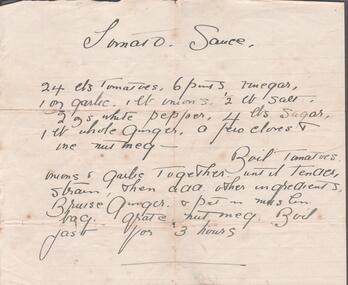 Tomato. Sauce.
24 lbs Tomatoes. 6 pints vinegar,
1 oz garlic. 1 lb onions. 2 lb salt.
2 ozs white pepper, 4 lbs sugar,
1 lb whole ginger, a few cloves &
one nutmeg —
Boil Tomatoes.
onions & garlic together until tender,
strain, then add other ingredients,
Bruise Ginger. & put in muslin
bag. grate nutmeg. Boil
fast for 3 hours